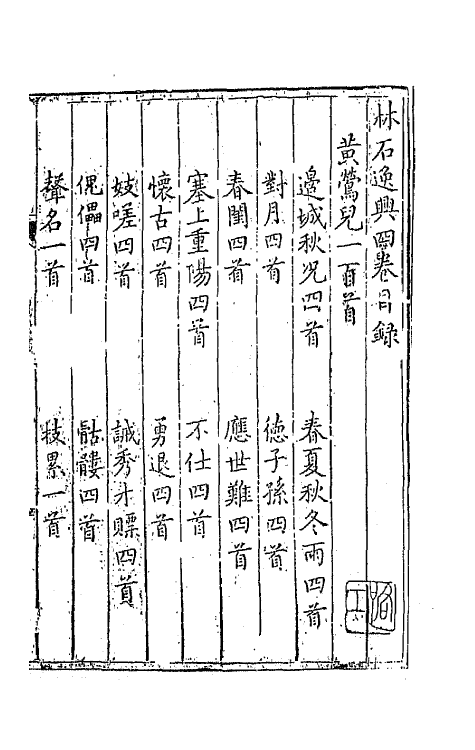 林石逸興四卷目録
黃鶯兒一百首
邊城秋況四首 春夏秋冬雨四首
對月四首 德子孫四首
春閨四首 應世難四首
塞上重陽四首 不仕四首
懷古四首 勇退四首
妓嗟四首 誡秀才賭四首
傀儡四首 骷髏四首
聲名一首 一首